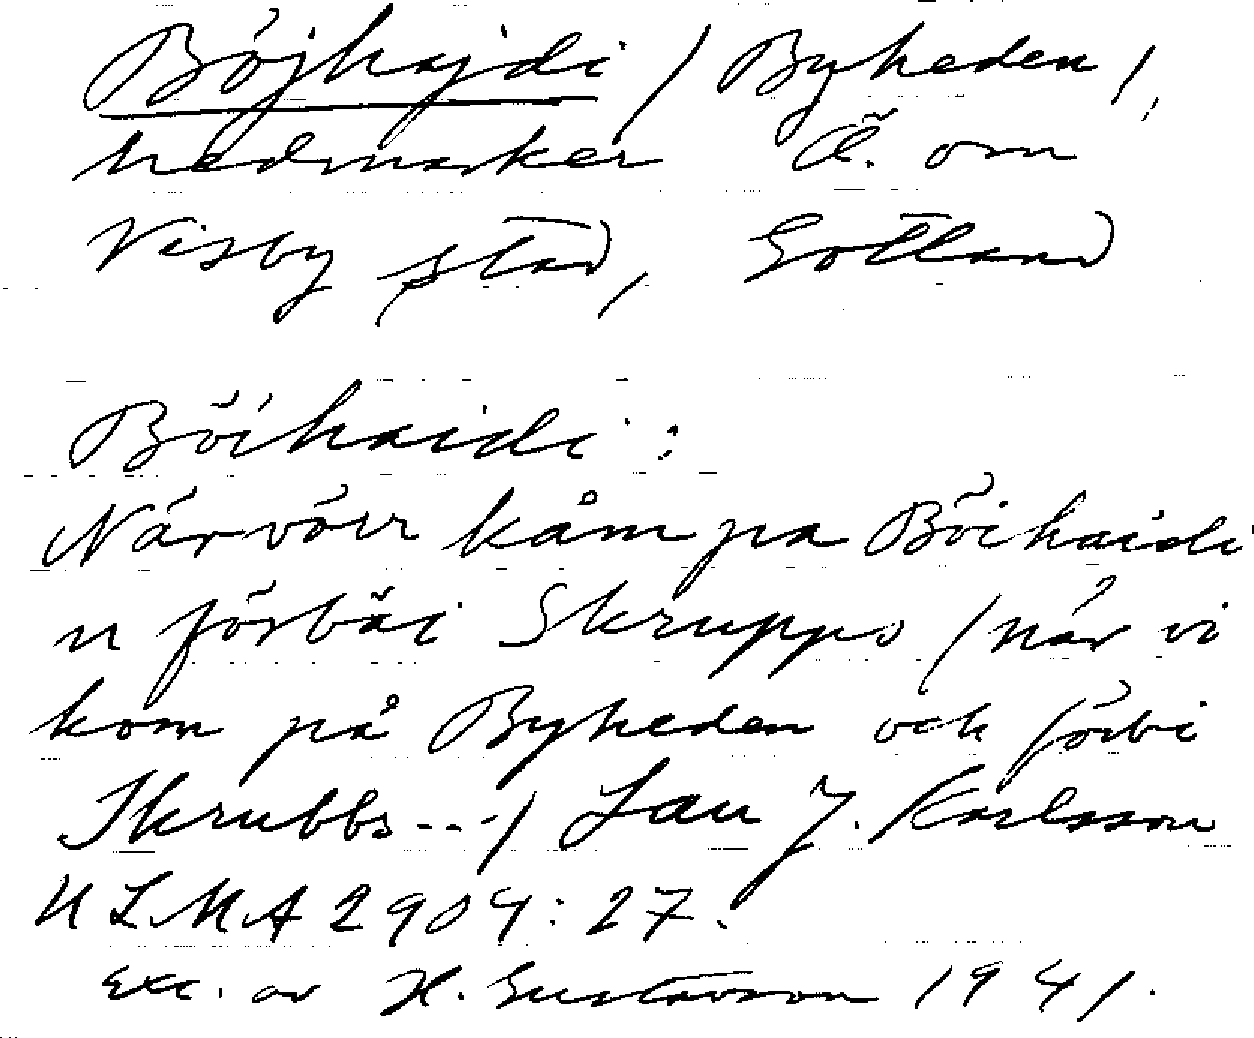 Böjhajdi / Byheden /,
hedmarker Ö. om
Visby stad, Gotland
Böihaidi :
När vöir kåm pa Böihaidi
u förbäi Skrupps / når vi
kom på Byheden och förbi
Skrubbs---/ Lau J. Karlsson
ULMA 2904:27.
Exc. av H. Gustavson 1941.